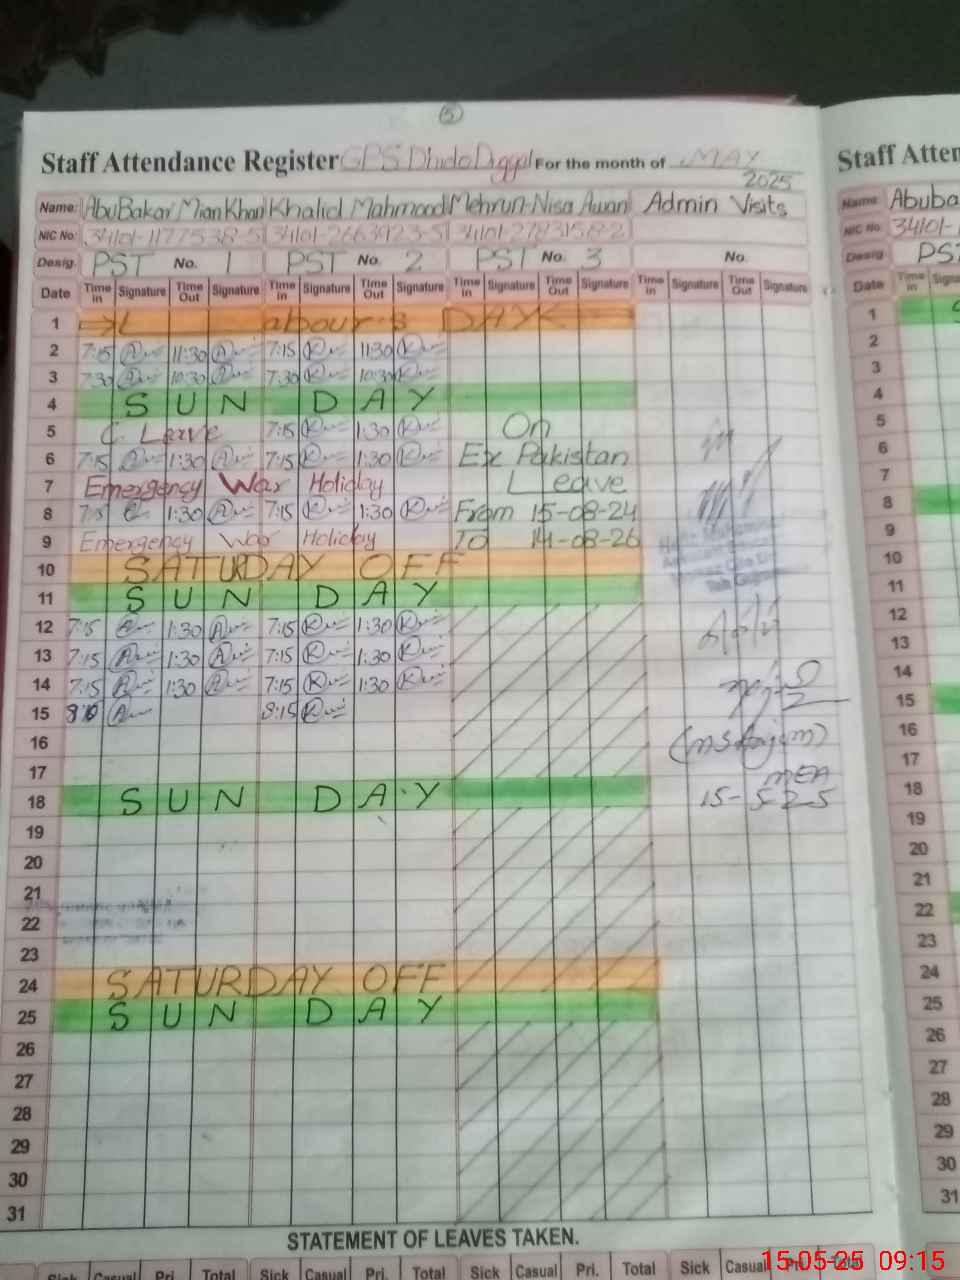 5
Staff Attendance Register GPS Dhido Duggal For the month of MAY
2025
Name: AbuBakar Mian Khan Khalid Mahmood Mehrun-Nisa Awan Admin Visits
NIC No: 34101-1177538-5 34101-2663923-5 34101-2783158-2
Desig. PST No. 1 PST No. 2 PST No. 3 No.
Date Time in Signature Time Out Signature Time in Signature Time Out Signature Time in Signature Time Out Signature Time in Signature Time Out Signature
1 Labour's DAY
2 7:15 11:30 7:15 11:30
3 7:30 10:30 7:30 10:30
4 SUN DAY
5 C. Leave 7:15 1:30 On
6 7:15 1:30 7:15 1:30 Ex Pakistan
7 Emergency War Holiday Leave
8 7:15 1:30 7:15 1:30 From 15-08-24
9 Emergency War Holiday TO 14-08-26
10 SATURDAY OFF
11 SUN DAY
12 7:15 1:30 7:15 1:30
13 7:15 1:30 7:15 1:30
14 7:15 1:30 7:15 1:30
15 8:15
16
17 MEA
18 SUN DAY 15-5-25
19
20
21
22
23
24 SATURDAY OFF
25 SUN DAY
26
27
28
29
30
31
STATEMENT OF LEAVES TAKEN.
Sick Casual Pri. Total Sick Casual Pri. Total Sick Casual Pri. Total Sick Casual Pri. Total
Staff Atten
Name: Abuba
NIC No: 34101-
Desig. PST
Date Time in
1
2
3
4
5
6
7
8
9
10
11
12
13
14
15
16
17
18
19
20
21
22
23
24
25
26
27
28
29
30
31
15-05-25 09:15